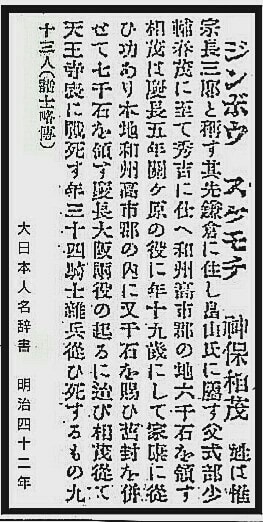 ジンボウ スケモチ 神保相茂 姓は惟
宗長三郎と稱す其先鎌倉に住し畠山氏に屬す父式部少
輔春茂に至て秀吉に仕へ和州高市郡の地六千石を領す
相茂は慶長五年關ケ原の役に年十九歳にして家康に從
ひ功あり本地和州高市郡の内に又千石を賜ひ舊封を併
せて七千石を領す慶長大阪兩役の起るに迨び相茂從て
天王寺表に戰死す年三十四騎士雜兵從ひ死するもの九
十三人(諸士略傳)
大日本人名辞書 明治四十二年